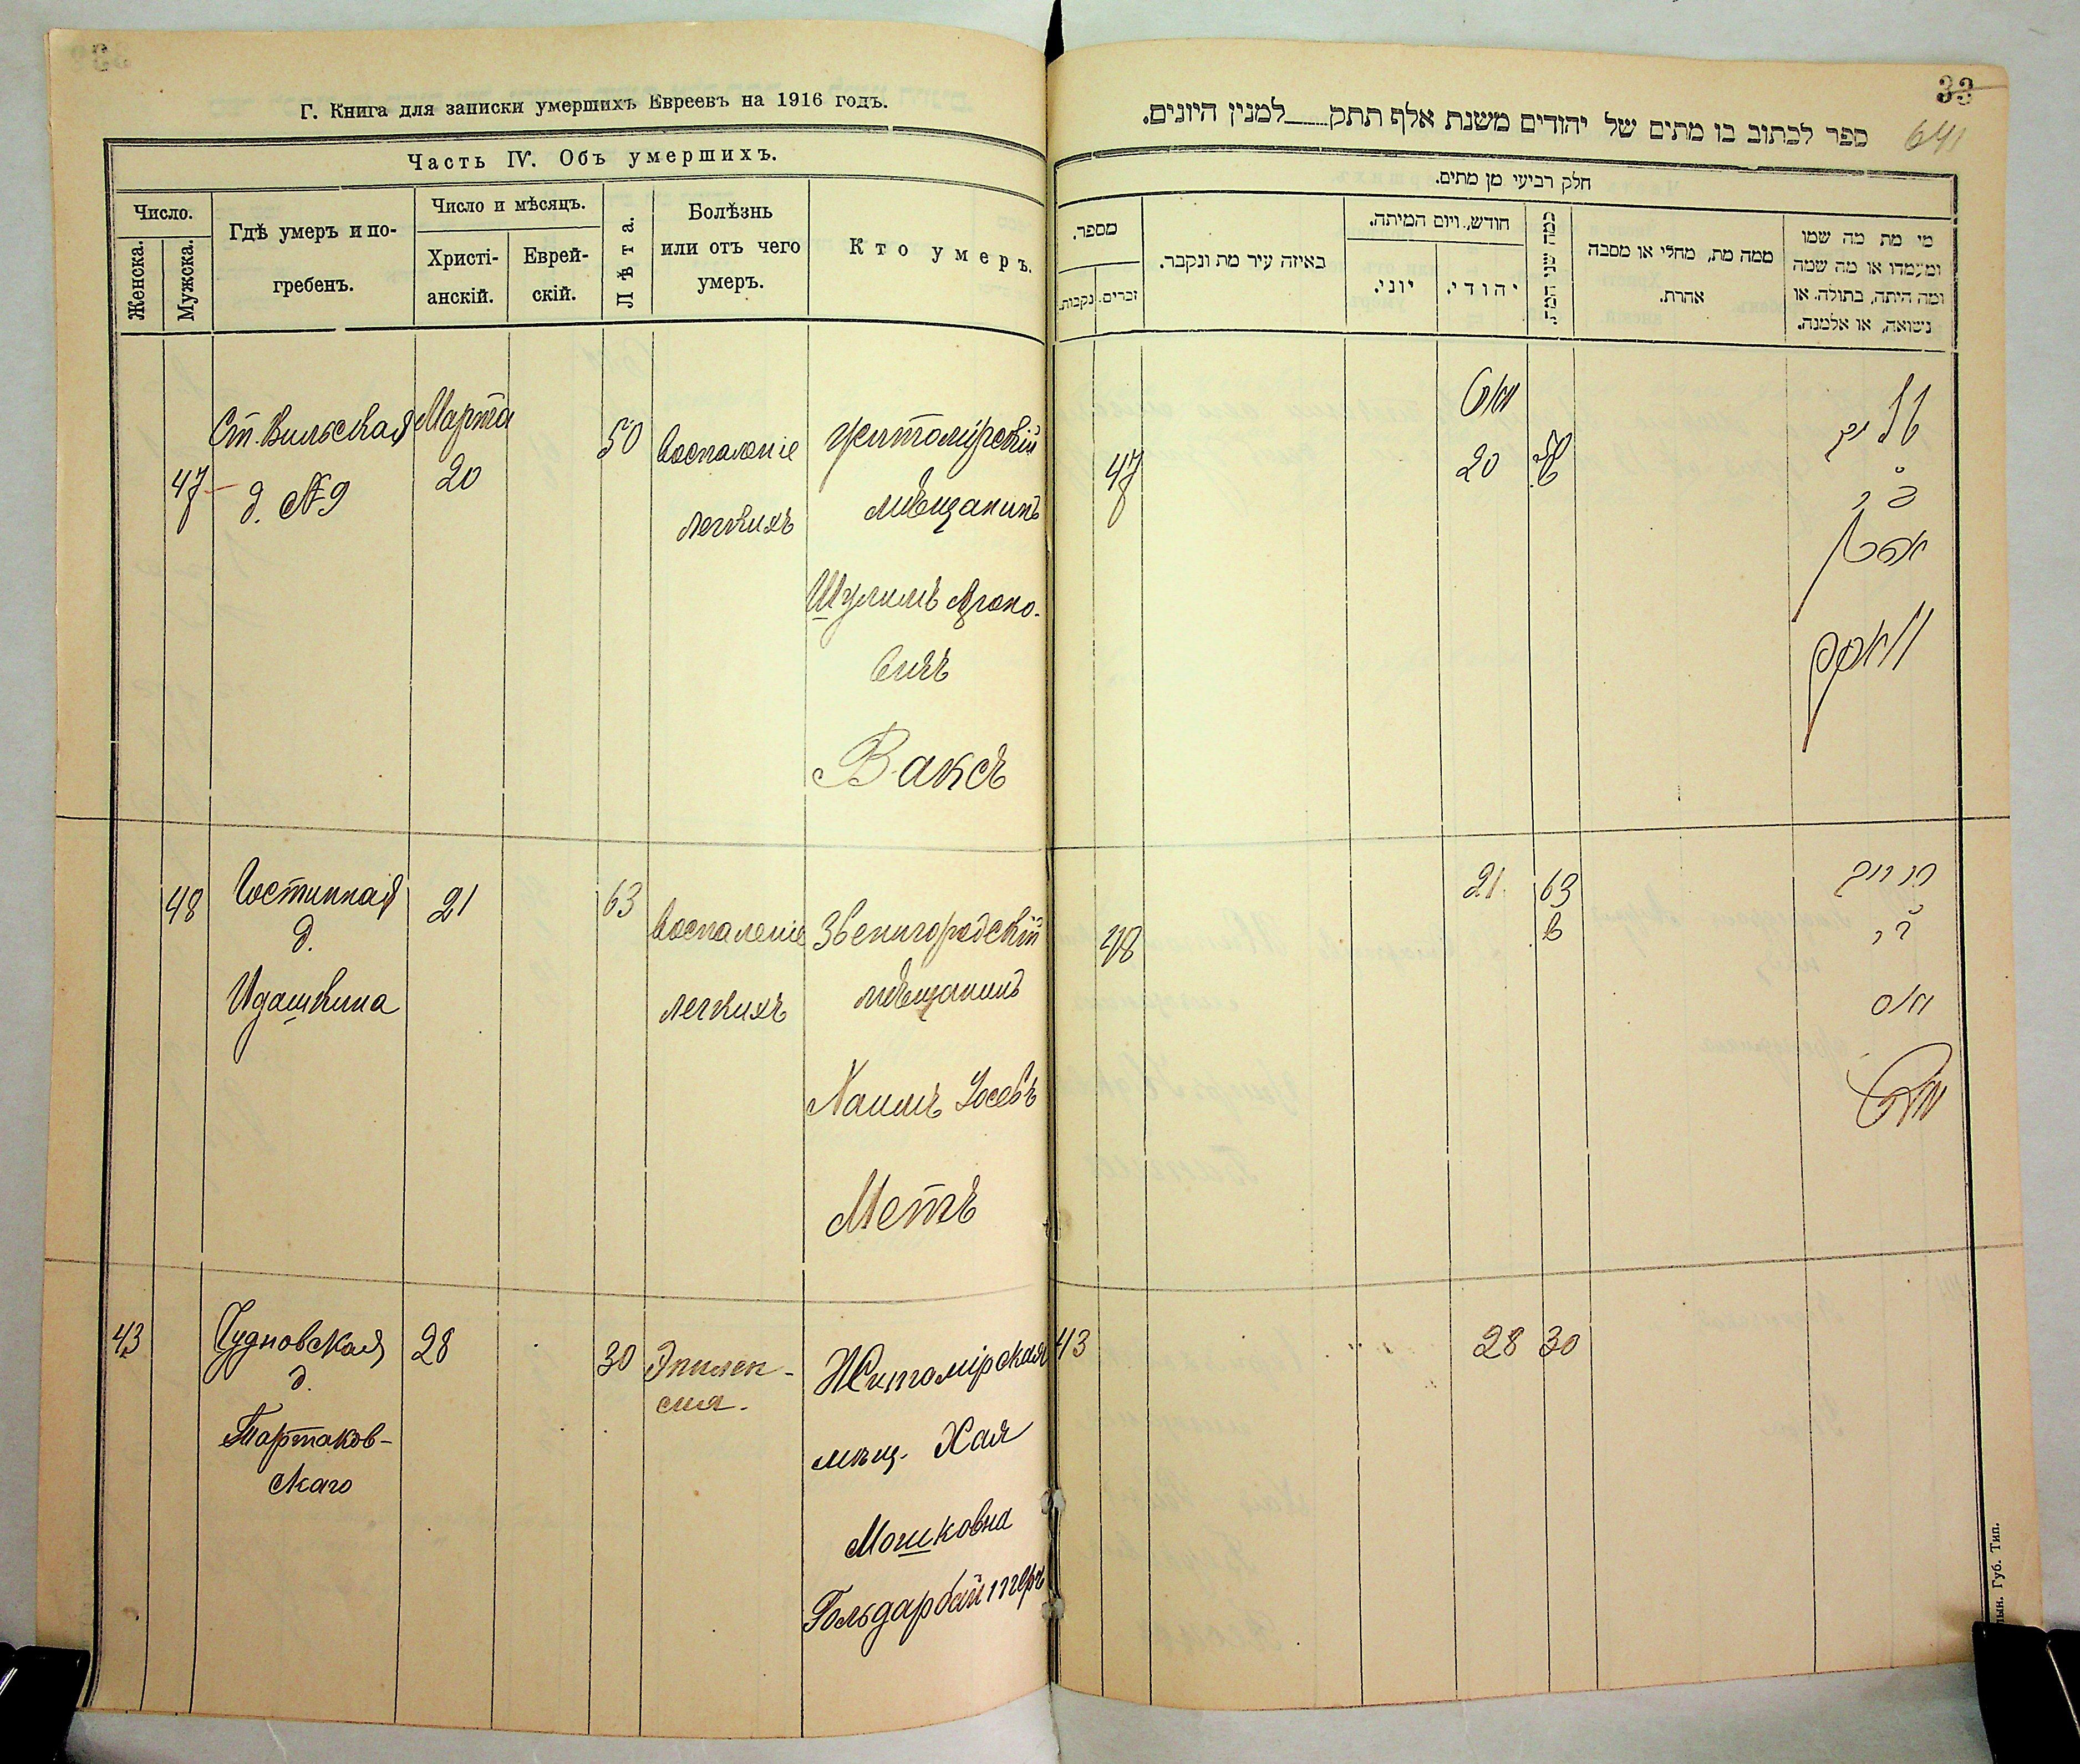 Г. Книга для записки умершихъ Евреевъ на 1916 годъ.
Часть IV. Объ умершихъ.
Число.
Женска.
Мужска.
Гдѣ умеръ и по-
гребенъ.
Число и мѣсяцъ.
Христі-
анскій.
Еврей-
скій.
Лѣта.
Болѣзнь
или отъ чего
умеръ.
Кто умеръ.
47
Ст. Вильская
д. №9
Марта
20
50
Воспаленіе
легкихъ
Житомірскій
мѣщанинъ
Шулимъ Ароно-
вичъ
Ваксъ
48
Гостинная
д.
Идашкина
21
63
Воспаленіе
легкихъ
Звенигородскій
мѣщанинъ
Хаимъ Іосевъ
Метъ
43
Чудновская
д.
Тартаков-
скаго
28
30
Эпилеп-
сия.
Житомірская
мѣщ. Хая
Мошковна
Гольдарбайтеръ
33
641
ספר לכתוב בו מתים של יהודים משנת אלף תתק___למנין היונים.
חלק רביעי מן מתים.
מספר.
זכרים.
נקבות.
באיזה עיר מת ונקבר.
חודש, ויום המיתה.
יוני.
יהודי.
כמה שני המת.
ממה מת, מחלי או מסבה
אהרת.
מי מת מה שמו
ומעמדו או מה שמה
ומה היתה, בתולה. או
נשואה, או אלמנה.
47
20
48
21
63
43
28
30
Губ. Тип.